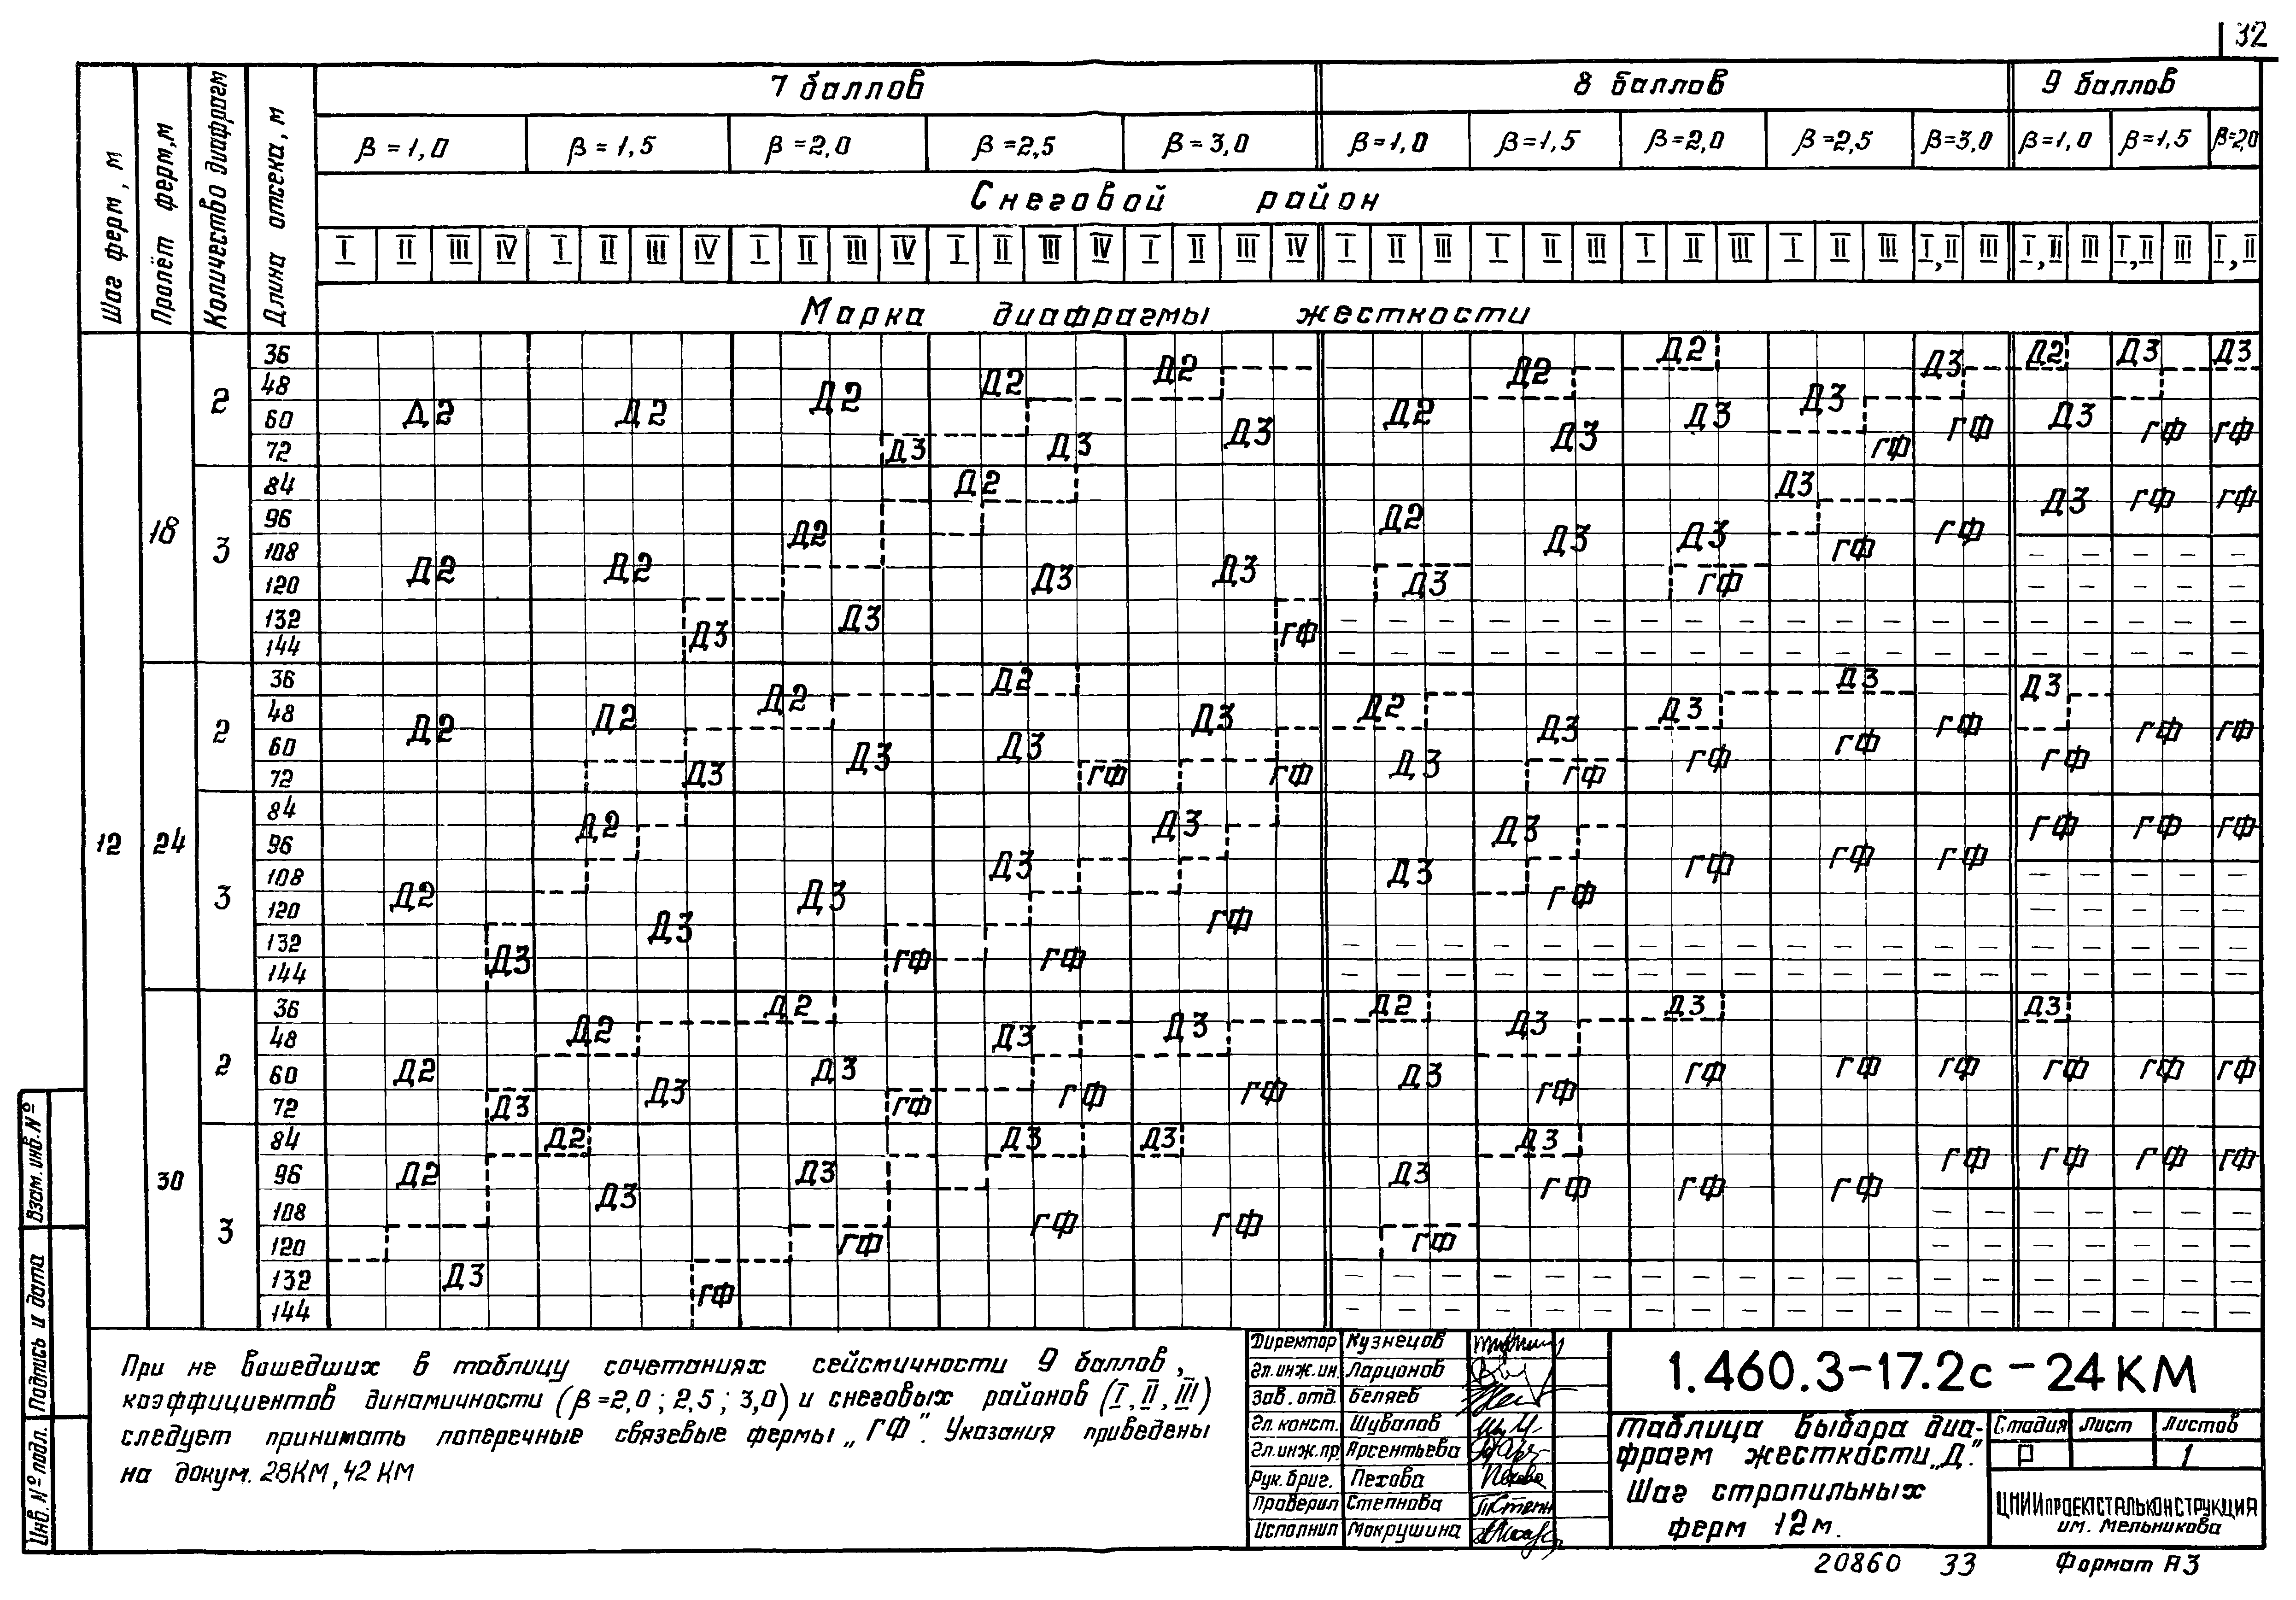 32
Шаг ферм, м
Пролёт ферм, м
Количество диафрагм
Длина отсека, м
7 баллов 8 баллов 9 баллов
β=1,0 β=1,5 β=2,0 β=2,5 β=3,0 β=1,0 β=1,5 β=2,0 β=2,5 β=3,0 β=1,0 β=1,5 β=2,0
Снеговой район
I II III IV I II III IV I II III IV I II III IV I II III IV I II III I II III I II III I II III I,II III I,II III I,II III I,II
Марка диафрагмы жесткости
12
18
2
36 Д2 Д2 Д2 Д3 Д2 Д3 Д3
48 Д2 Д2 Д2 Д3
60 Д2 Д2 Д2 Д3 Д3 ГФ Д3 ГФ ГФ
72 Д3 Д3 Д3 Д3 ГФ
3
84 Д2 Д3 Д3 ГФ ГФ
96 Д2 Д2 Д3 Д3 ГФ
108 Д2 Д2 Д3 Д3 ГФ — — — — —
120 Д3 Д3 ГФ — — — — —
132 Д3 — — — — — — — — — — — — — — — — — — —
144 Д3 ГФ — — — — — — — — — — — — — — — — — — —
24
2
36 Д2 Д3 Д3
48 Д2 Д2 Д2 Д3 Д2 Д3 Д3 ГФ ГФ ГФ
60 Д3 Д3 Д3 ГФ ГФ ГФ
72 Д3 ГФ ГФ ГФ
3
84 Д2 Д3 Д3 ГФ ГФ ГФ
96 Д3 Д3 ГФ ГФ ГФ
108 Д2 Д3 ГФ — — — — —
120 Д3 ГФ — — — — —
132 Д3 ГФ ГФ — — — — — — — — — — — — — — — — — — —
144 — — — — — — — — — — — — — — — — — — —
30
2
36 Д2 Д2 Д3 Д3
48 Д2 Д3 Д3 Д3
60 Д2 Д3 Д3 ГФ ГФ ГФ ГФ ГФ ГФ
72 Д3 Д3 ГФ ГФ ГФ ГФ
3
84 Д2 Д3 Д3 Д3
96 Д2 Д3 Д3 ГФ ГФ ГФ ГФ ГФ ГФ ГФ
108 Д3 ГФ ГФ — — — — — — —
120 ГФ ГФ — — — — — — —
132 Д3 ГФ — — — — — — — — — — — — — — — — — — —
144 — — — — — — — — — — — — — — — — — — —
При не вошедших в таблицу сочетаниях сейсмичности 9 баллов,
коэффициентов динамичности (β=2,0; 2,5; 3,0) и снеговых районов (I, II, III)
следует принимать поперечные связевые фермы „ГФ". Указания приведены
на докум. 28КМ, 42КМ
Директор Кузнецов
Гл.инж.ин. Ларионов
Зав. отд. Беляев
Гл. конст. Шувалов
Гл.инж.пр. Арсентьева
Рук. бриг. Пехова
Проверил Степнова
Исполнил Мокрушина
1.460.3-17.2с-24КМ
Таблица выбора диа-
фрагм жесткости „Д".
Шаг стропильных
ферм 12м.
Стадия Лист Листов
Р 1
ЦНИИПРОЕКТСТАЛЬКОНСТРУКЦИЯ
им. Мельникова
20860 33 Формат А3
Взам. инв. №
Подпись и дата
Инв. № подл.